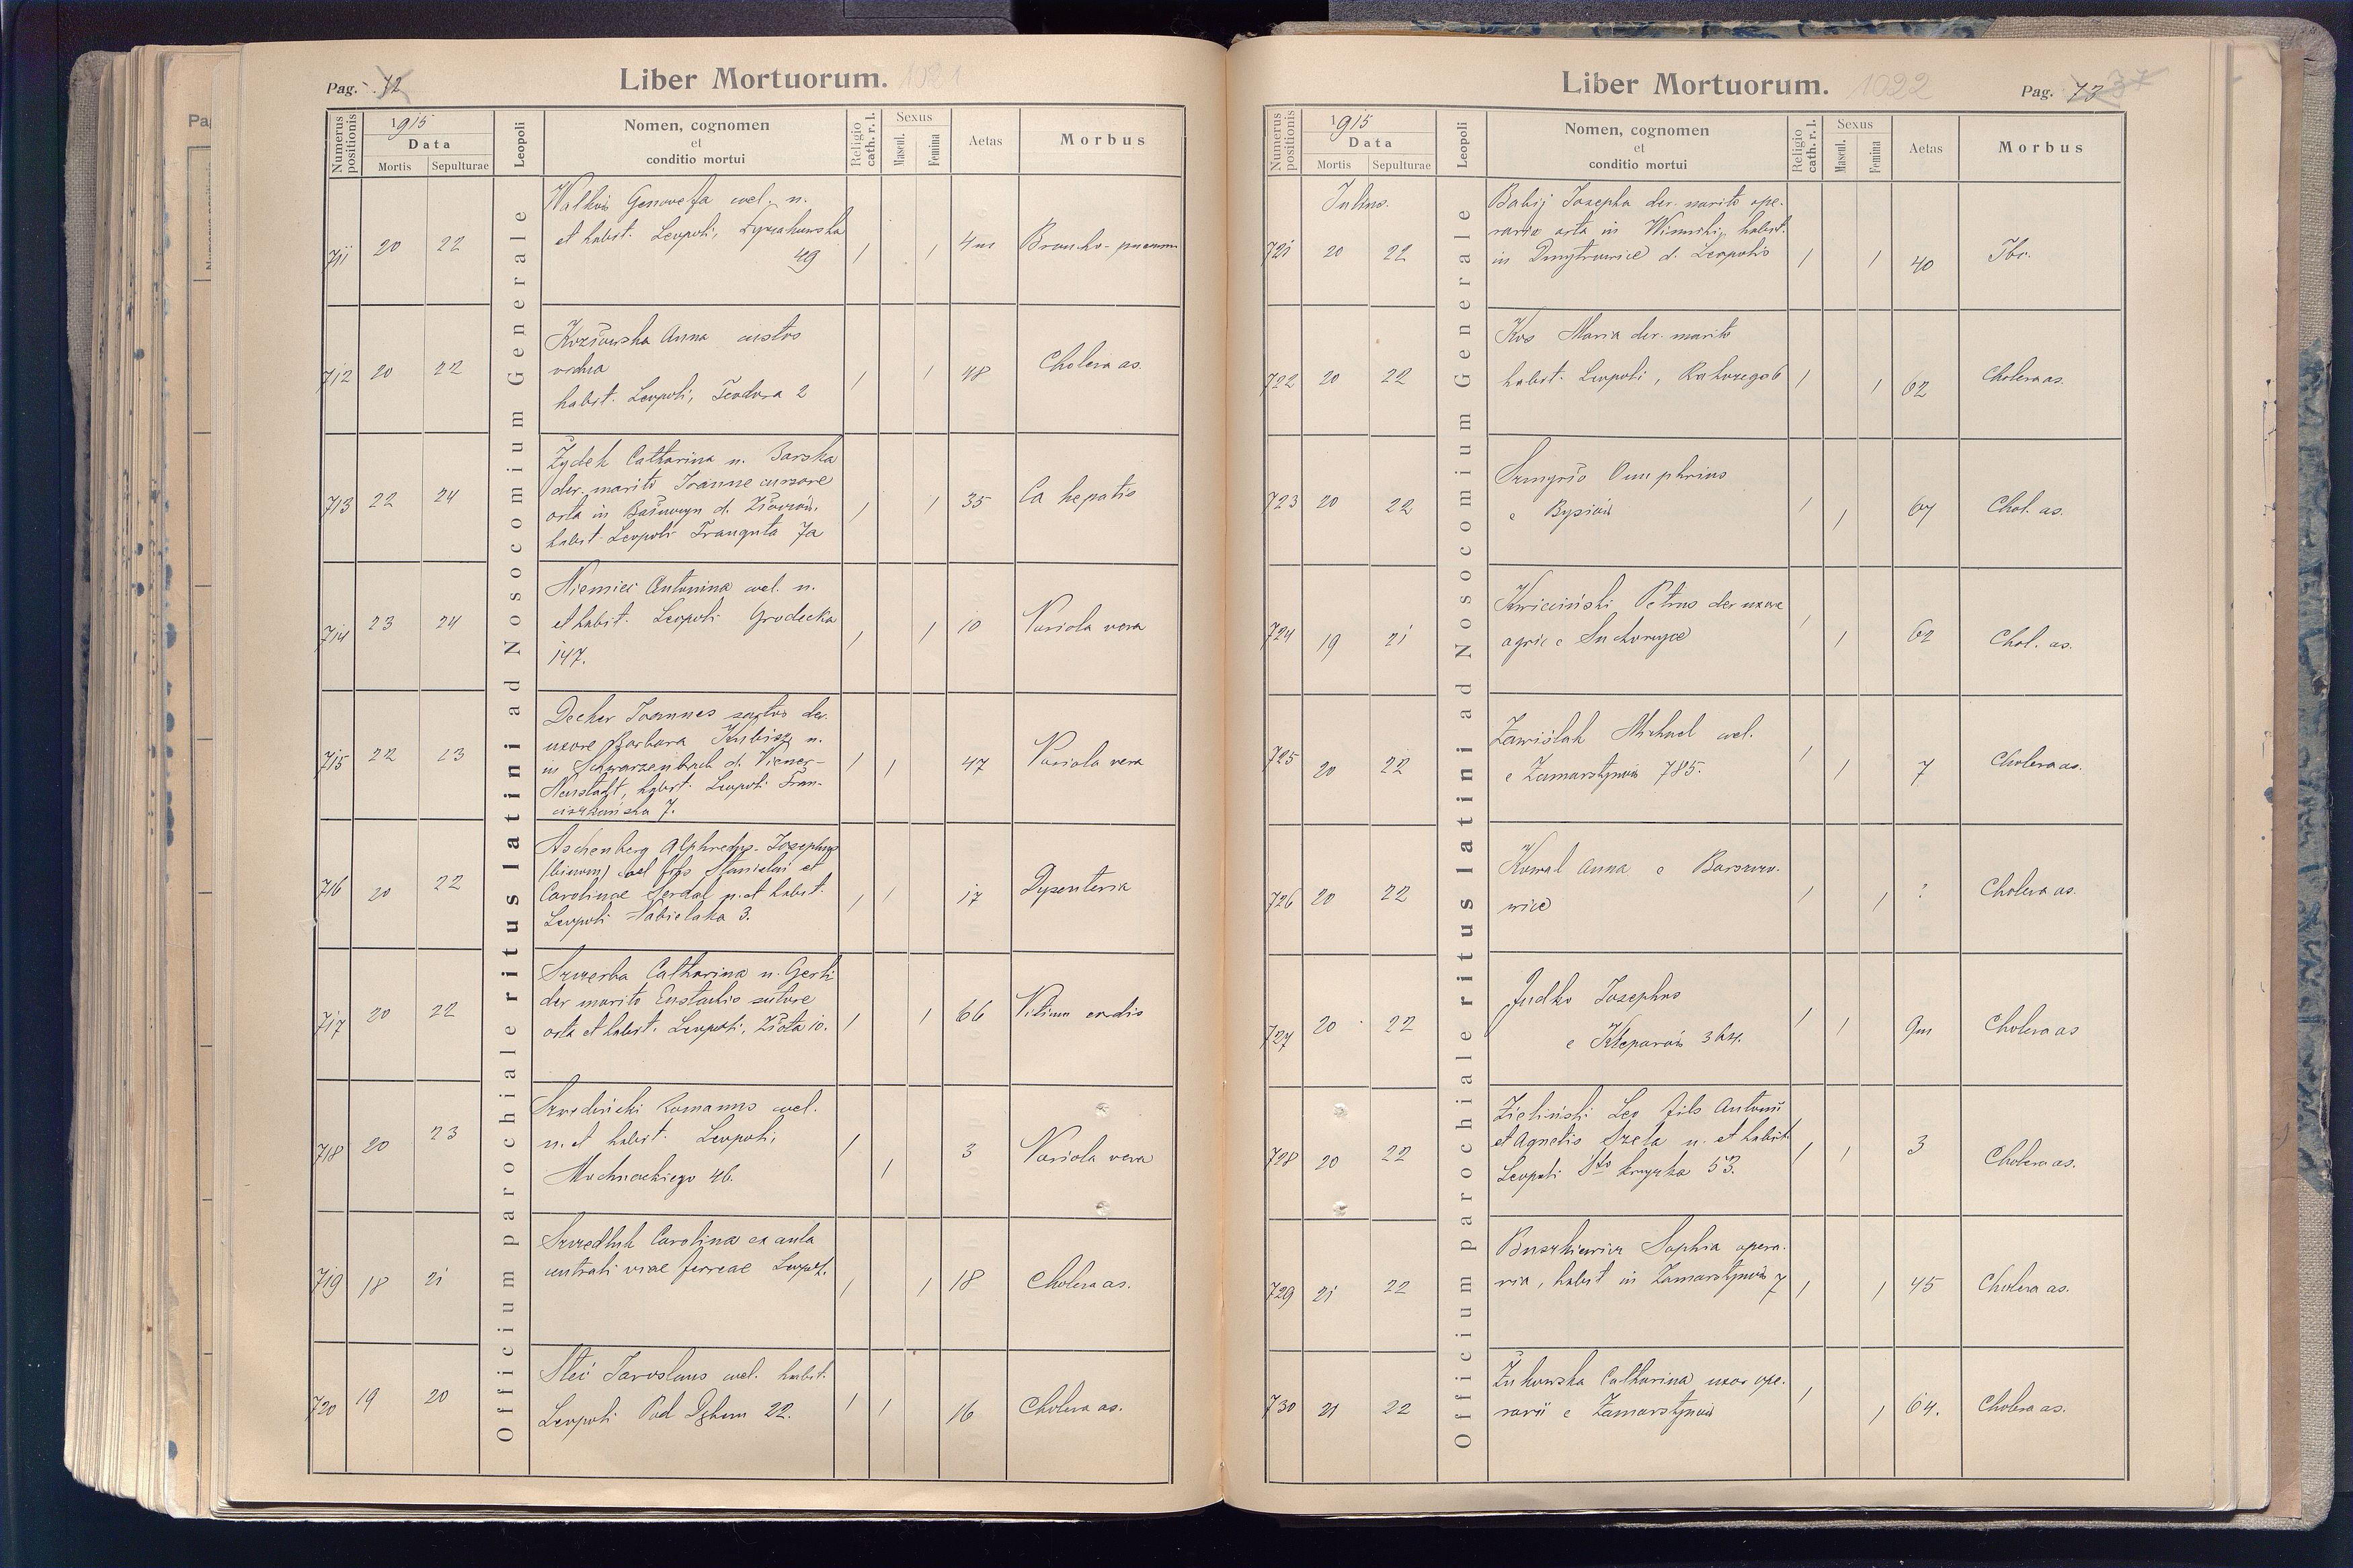 Pag. 72
Liber Mortuorum. 1021
Numerus positionis
1915
Data
Mortis Sepulturae
Leopoli
Nomen, cognomen
et
conditio mortui
Religio cath. r. l.
Sexus
Mascul. Femina
Aetas
Morbus
Officium parochiale ritus latini ad Nosocomium Generale
711 20 22
Genovefa cael. n.
et habit. Leopoli, Łyczakowska
49
1 1 4m Broncho-pneum
712 20 22
Kozłowska Anna custos
vidua
habit. Leopoli, Teodora 2
1 1 48 Cholera as.
713 22 24
Żydek Catharina n. Barska
der. marito Joanne cursore
orta in d.
habit. Leopoli 7a
1 1 35 Ca hepatis
714 23 24
Niemiec Antonina cael. n.
et habit. Leopoli Grodecka
147.
1 1 10 Variola vera
715 22 23
Decker Joannes sartor der.
uxore Barbara Kubisz n.
in Schwarzenbach d. Viener-
Neustadt, habit. Leopoli Fran-
ciszkańska 7.
1 1 47 Variola vera
716 20 22
Aschenberg Alphredus-Josephus
(binom) cael. fils Stanislai et
Carolinae Serdal n. et habit.
Leopoli Nabielaka 3.
1 1 17 Dysenteria
717 20 22
Szczerba Catharina n. Gerli
der marito Eustachio sutore
orta et habit. Leopoli, Złota 10.
1 1 66 Vitium cordis
718 20 23
Romanus cael.
n. et habit. Leopoli,
Mochnackiego 46.
1 1 3 Variola vera
719 18 21
Carolina ex aula
centrali viae ferreae Leopol.
1 1 18 Cholera as.
720 19 20
Jaroslaus cael. habit.
Leopoli Pod Dębem 22.
1 1 16 Cholera as.
Liber Mortuorum. 1022
Pag. 73
Numerus positionis
1915
Data
Mortis Sepulturae
Leopoli
Nomen, cognomen
et
conditio mortui
Religio cath. r. l.
Sexus
Mascul. Femina
Aetas
Morbus
Officium parochiale ritus latini ad Nosocomium Generale
Julius.
721 20 22
Babij Josepha der. marito ope-
rario orta in Winniki, habit.
in Dmytrowice d. Leopolis
1 1 40 Tbc.
722 20 22
Kos Maria der. marito
habit. Leopoli, 6
1 1 62 Cholera as.
723 20 22
Onuphrius
e
1 1 67 Chol. as.
724 19 21
Kwieciński Petrus der uxore
agric e Suchorzyce
1 1 62 Chol. as.
725 20 22
Zawiślak Michael cael.
e Zamarstynów 785.
1 1 7 Cholera as.
726 20 22
Kowal Anna e Barszczo-
wice
1 1 ? Cholera as.
727 20 22
Judko Josephus
e Kleparów 364.
1 1 9m Cholera as
728 20 22
Zieliński Leo fils Antonii
et Agnetis Szela n. et habit.
Leopoli Sto krzyska 53.
1 1 3 Cholera as.
729 21 22
Buszkiewicz Sophia opera-
ria, habit in Zamarstynów 7
1 1 45 Cholera as.
730 21 22
Żukowska Catharina uxor ope-
rarii e Zamarstynów
1 1 64. Cholera as.